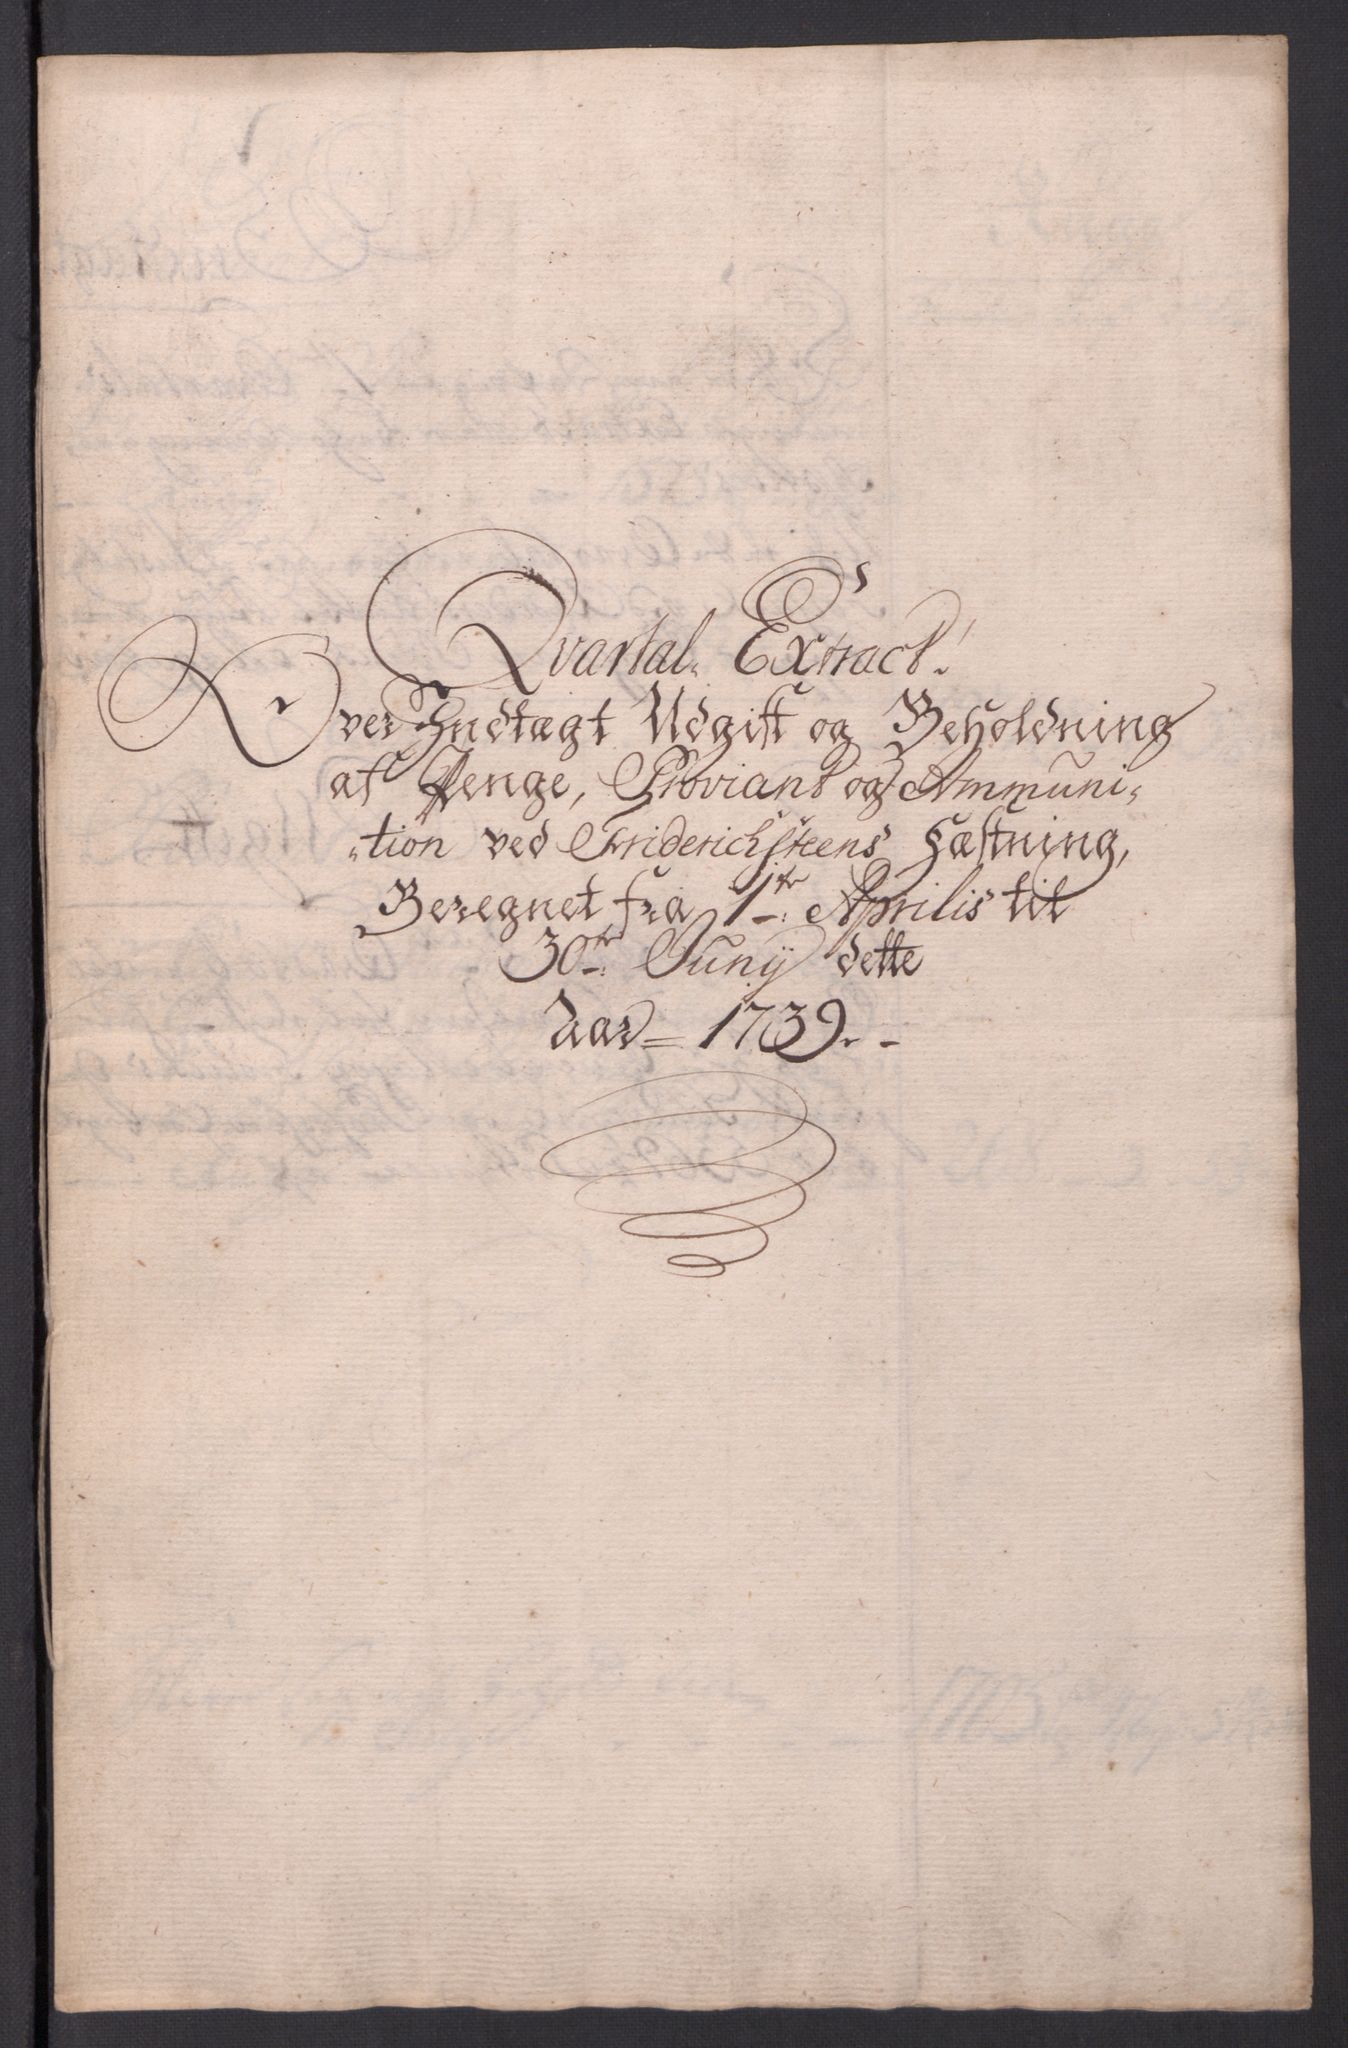 Qvartal Extract
Over Indtægt Udgift og Beholdning
af Penge, Proviant og Ammuni-
-tion ved Friderichsteens Fæstning,
Beregnet fra 1te Aprilis til
30te Junij dette
Aar 1739.